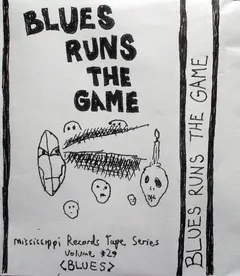 BLUES
RUNS
THE
GAME
Mississippi Records Tape Series
volume #29
<BLUES>
BLUES RUNS THE GAME